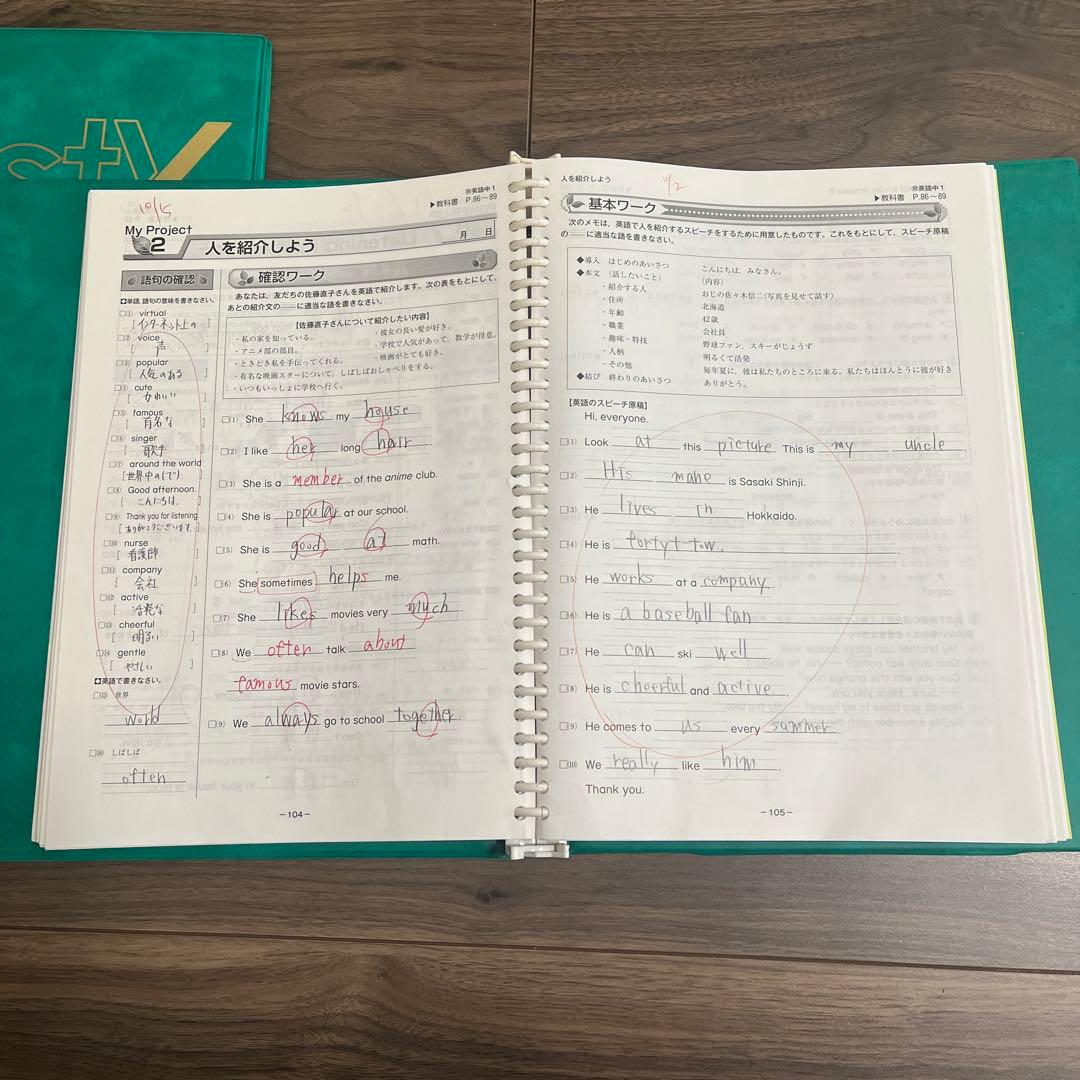 sty
10/15
㊥英語中1
▶教科書 P.86〜89
My Project
2 人を紹介しよう
月 日
語句の確認
✪単語、語句の意味を書きなさい。
□① virtual
[インターネット上の]
□② voice
[声]
□③ popular
[人気のある]
□④ cute
[かわいい]
□⑤ famous
[有名な]
□⑥ singer
[歌手]
□⑦ around the world
[世界中の(で)]
□⑧ Good afternoon.
[こんにちは。]
□⑨ Thank you for listening.
[ありがとうございます。]
□⑩ nurse
[看護師]
□⑪ company
[会社]
□⑫ active
[活発な]
□⑬ cheerful
[明るい]
□⑭ gentle
[やさしい]
✪英語で書きなさい。
□⑮ 世界
world
□⑯ しばしば
often
確認ワーク
あなたは、友だちの佐藤直子さんを英語で紹介します。次の表をもとにして、
あとの紹介文の___に適当な語を書きなさい。
【佐藤直子さんについて紹介したい内容】
・私の家を知っている。 ・彼女の長い髪が好き。
・アニメ部の部員。 ・学校で人気があって、数学が得意。
・ときどき私を手伝ってくれる。 ・映画がとても好き。
・有名な映画スターについて、しばしばおしゃべりをする。
・いつもいっしょに学校へ行く。
□(1) She knows my house.
□(2) I like her long hair.
□(3) She is a member of the anime club.
□(4) She is popular at our school.
□(5) She is good at math.
□(6) She sometimes helps me.
□(7) She likes movies very much.
□(8) We often talk about
famous movie stars.
□(9) We always go to school together.
－104－
人を紹介しよう
11/2
㊥英語中1
▶教科書 P.86〜89
基本ワーク
次のメモは、英語で人を紹介するスピーチをするために用意したものです。これをもとにして、スピーチ原稿
の___に適当な語を書きなさい。
◆導入 はじめのあいさつ こんにちは、みなさん。
◆本文 (話したいこと) (内容)
・紹介する人 おじの佐々木信二(写真を見せて話す)
・住所 北海道
・年齢 42歳
・職業 会社員
・趣味・特技 野球ファン、スキーがじょうず
・人柄 明るくて活発
・その他 毎年夏に、彼は私たちのところに来る。私たちはほんとうに彼が好き
◆結び 終わりのあいさつ ありがとう。
【英語のスピーチ原稿】
Hi, everyone.
□(1) Look at this picture. This is my uncle.
□(2) His mane is Sasaki Shinji.
□(3) He lives in Hokkaido.
□(4) He is forty-tow.
□(5) He works at a company.
□(6) He is a baseball fan
□(7) He can ski well.
□(8) He is cheerful and active.
□(9) He comes to us every summer.
□(10) We really like him.
Thank you.
－105－